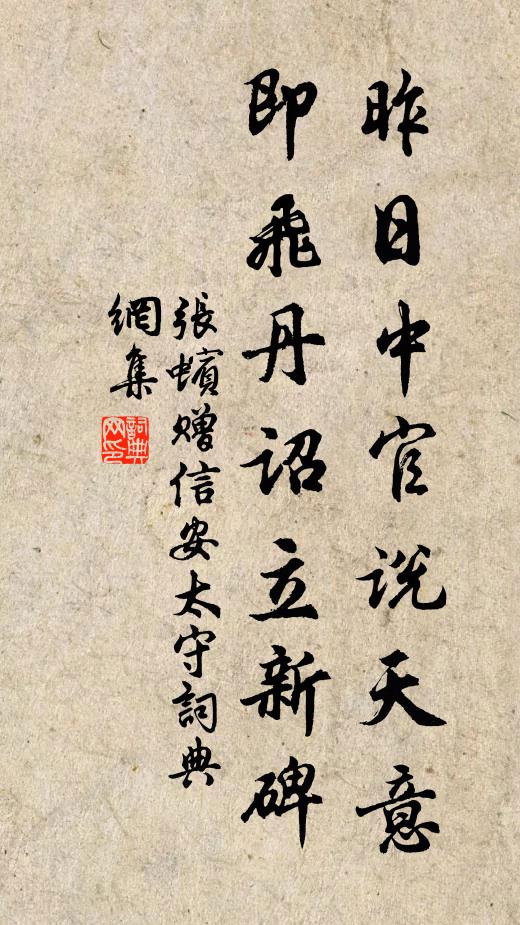 昨日中官説天意
即飛丹詔立新碑
張蠙贈信安太守詞典
網集
詞典
網印